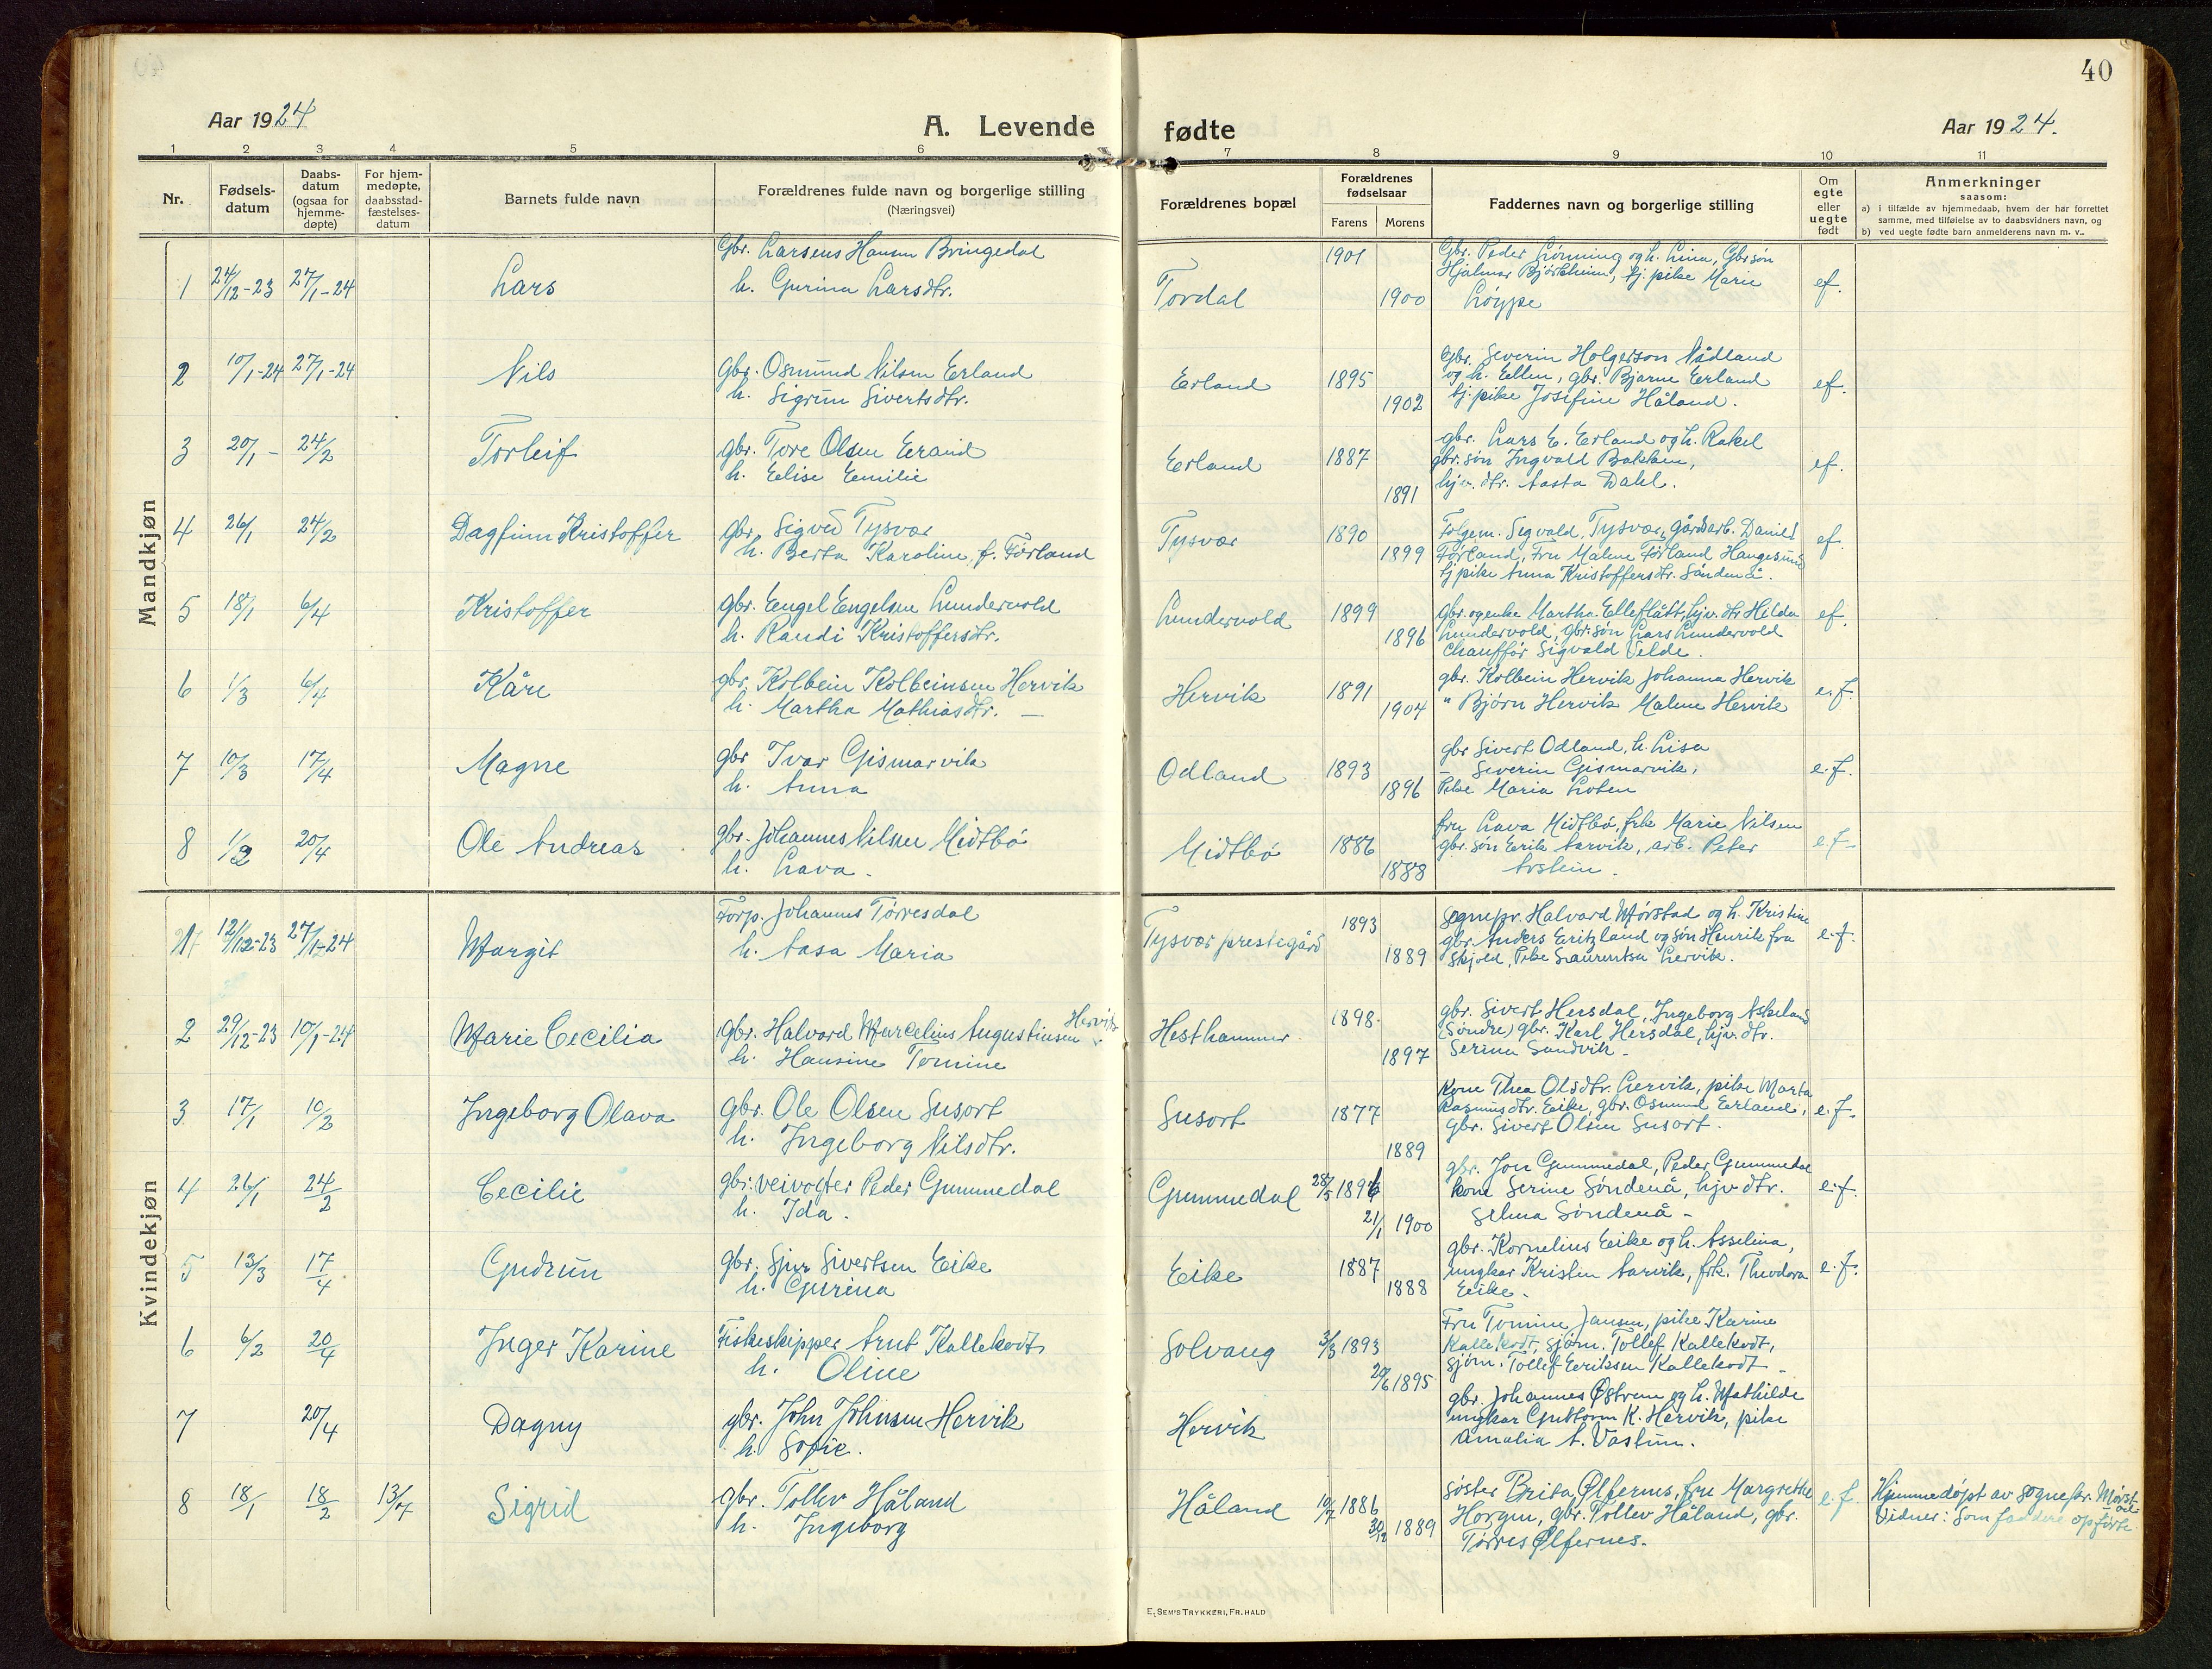 40
Aar 1924
A. Levende fødte
Aar 1924.
1 2 3 4 5 6 7 8 9 10 11
Nr.
Fødsels-
datum
Daabs-
datum
(ogsaa for
hjemme-
døpte)
For hjem-
medøpte,
daabsstad-
fæstelses-
datum
Barnets fulde navn
Forældrenes fulde navn og borgerlige stilling
(Næringsvei)
Forældrenes bopæl
Forældrenes
fødselsaar
Farens Morens
Faddernes navn og borgerlige stilling
Om
egte
eller
uegte
født
Anmerkninger
saasom:
a) i tilfælde av hjemmedaab, hvem der har forrettet
samme, med tilføielse av to daabsvidners navn, og
b) ved uegte fødte barn anmelderens navn m. v..
Mandkjøn
1 24/12-23 27/1-24 Lars
Gbr. Larsens Hansen Bringedal
h. Gurina Larsdtr.
Tordal 1901 1900
Gbr. Peder Lønning og h. Lina, Gbr søn
Hjalmar Bjørkheim, tj. pike Marie
Løyppe
ef.
2 10/1-24 27/1-24 Nils
Gbr. Osmund Nilsen Erland
h. Sigrun Sivertsdtr.
Erland 1895 1902
Gbr. Severin Holgerson Nådland
og h. Ellen, gbr. Bjarne Erland
tj. pike Josefine Håland.
ef.
3 20/1 - 24/2 Torleif
gbr. Tore Olsen Erland
h. Elise Emilie
Erland 1887 1891
gbr. Lars E. Erland og h. Rakel
gbr. søn Ingvald Bakken,
hjv. dtr. Aasta Dahl.
ef.
4 26/1 24/2 Dagfinn Kristoffer
gbr. Sigved Tysvær
h. Berta Karoline, f. Førland
Tysvær 1890 1899
Folgem. Sigvald Tysvær, gårdsarb. Daniel
Førland, Fru Malene Førland Haugesund
tj pike Anna Kristoffersdtr. Søndenå.
ef.
5 18/1 6/4 Kristoffer
gbr. Engel Engelsen Lundervold
h. Randi Kristoffersdtr.
Lundervold 1899 1896
gbr. og enke Martha Elleflått, hjv. dtr Hilda
Lundervold, gbr. søn Lars Lundervold
chauffør Sigvald Velde.
ef.
6 1/3 6/4 Kåre
gbr. Kolbein Kolbeinsen Hervik
h. Martha Mathiasdtr. —
Hervik 1891 1904
gbr. Kolbein Hervik Johanna Hervik
" Bjørn Hervik Malene Hervik
e.f.
7 10/3 17/4 Magne
gbr Ivar Gismarvik
h. Anna
Odland 1893 1896
gbr Sivert Odland, h. Lisa
— Severin Gismarvik,
Pike Maria Loten
e.f.
8 1/2 20/4 Ole Andreas
gbr. Johannes Nilsen Midtbø
h. Lava.
Midtbø 1886 1888
fru Lava Midtbø, frk Marie Nilsen
gbr. søn Erik Aarvik, arb. Peter
Arstein.
e.f.
Kvindekjøn
1 12/12-23 27/1-24 Margit
Forp. Johannes Tørresdal
h. Aasa Maria
Tysvær prestegård 1893 1889
Sognepr. Halvard Mørstad og h. Kristine
gbr. Anders Eritzland og søn Henrik fra
Skjold, Pike Laurentsa Lervik.
e.f.
2 29/12-23 10/1-24 Marie Cecilia
Gbr. Halvard Marcelius Augustinsen Hervik
h. Hansine Tomine
Hesthammer 1898 1897
gbr. Sivert Hersdal, Ingeborg Askeland
(Søndre) gbr. Karl Hersdal, hjv. dtr.
Serina Sandvik.
3 17/1 10/2 Ingeborg Olava
Gbr. Ole Olsen Susort
h. Ingeborg Nilsdtr.
Susort 1877 1889
Kone Thea Olsdtr. Lervik, pike Marta
Rasmusdtr. Eike, gbr. Osmund Erland,
Gbr. Sivert Olsen Susort.
e.f.
4 26/1 24/2 Cecilie
gbr. veivogter Peder Gummedal
h. Ida.
Gummedal 28/5 1896 21/1 1900
gbr. Jon Gummedal, Peder Gummedal
kone Serine Søndenå, hjv dtr.
Selma Søndenå -
e.f.
5 13/3 17/4 Gudrun
gbr. Sjur Sivertsen Eike
h. Gurina
Eike 1887 1888
gbr. Kornelius Eike og h. Asselina,
ungkar Kristen Aarvik, frk. Theodora
Eike.
e.f.
6 6/2 20/4 Inger Karine
Fiskeskipper Arnt Kallekodt
h. Oline
Solvang 3/3 1893 20/6 1895
Fru Tomine Jansen, pike Karine
Kallekodt, sjøm. Tollef Kallekodt,
sjøm. Tollef Eriksen Kallekodt -
7 20/4 Dagny
gbr. John Johnsen Hervik
h. Sofie.
Hervik
gbr. Johannes Østrem og h. Mathilde
ungkar Guttorm K. Hervik, pike
Amalia A. Vastun.
8 18/1 18/2 13/7 Sigrid
gbr. Tollev Håland
h. Ingeborg
Håland 10/7 1886 30/12 1889
Søster Brita Ølfernes, fru Margrethe
Horgen, gbr. Tollev Håland, gbr.
Tørres Ølfernes.
e.f.
Hjemmedøpt av sognepr. Mørstad
Vidner: Som faddere opførte
E. SEM'S TRYKKERI, FR. HALD